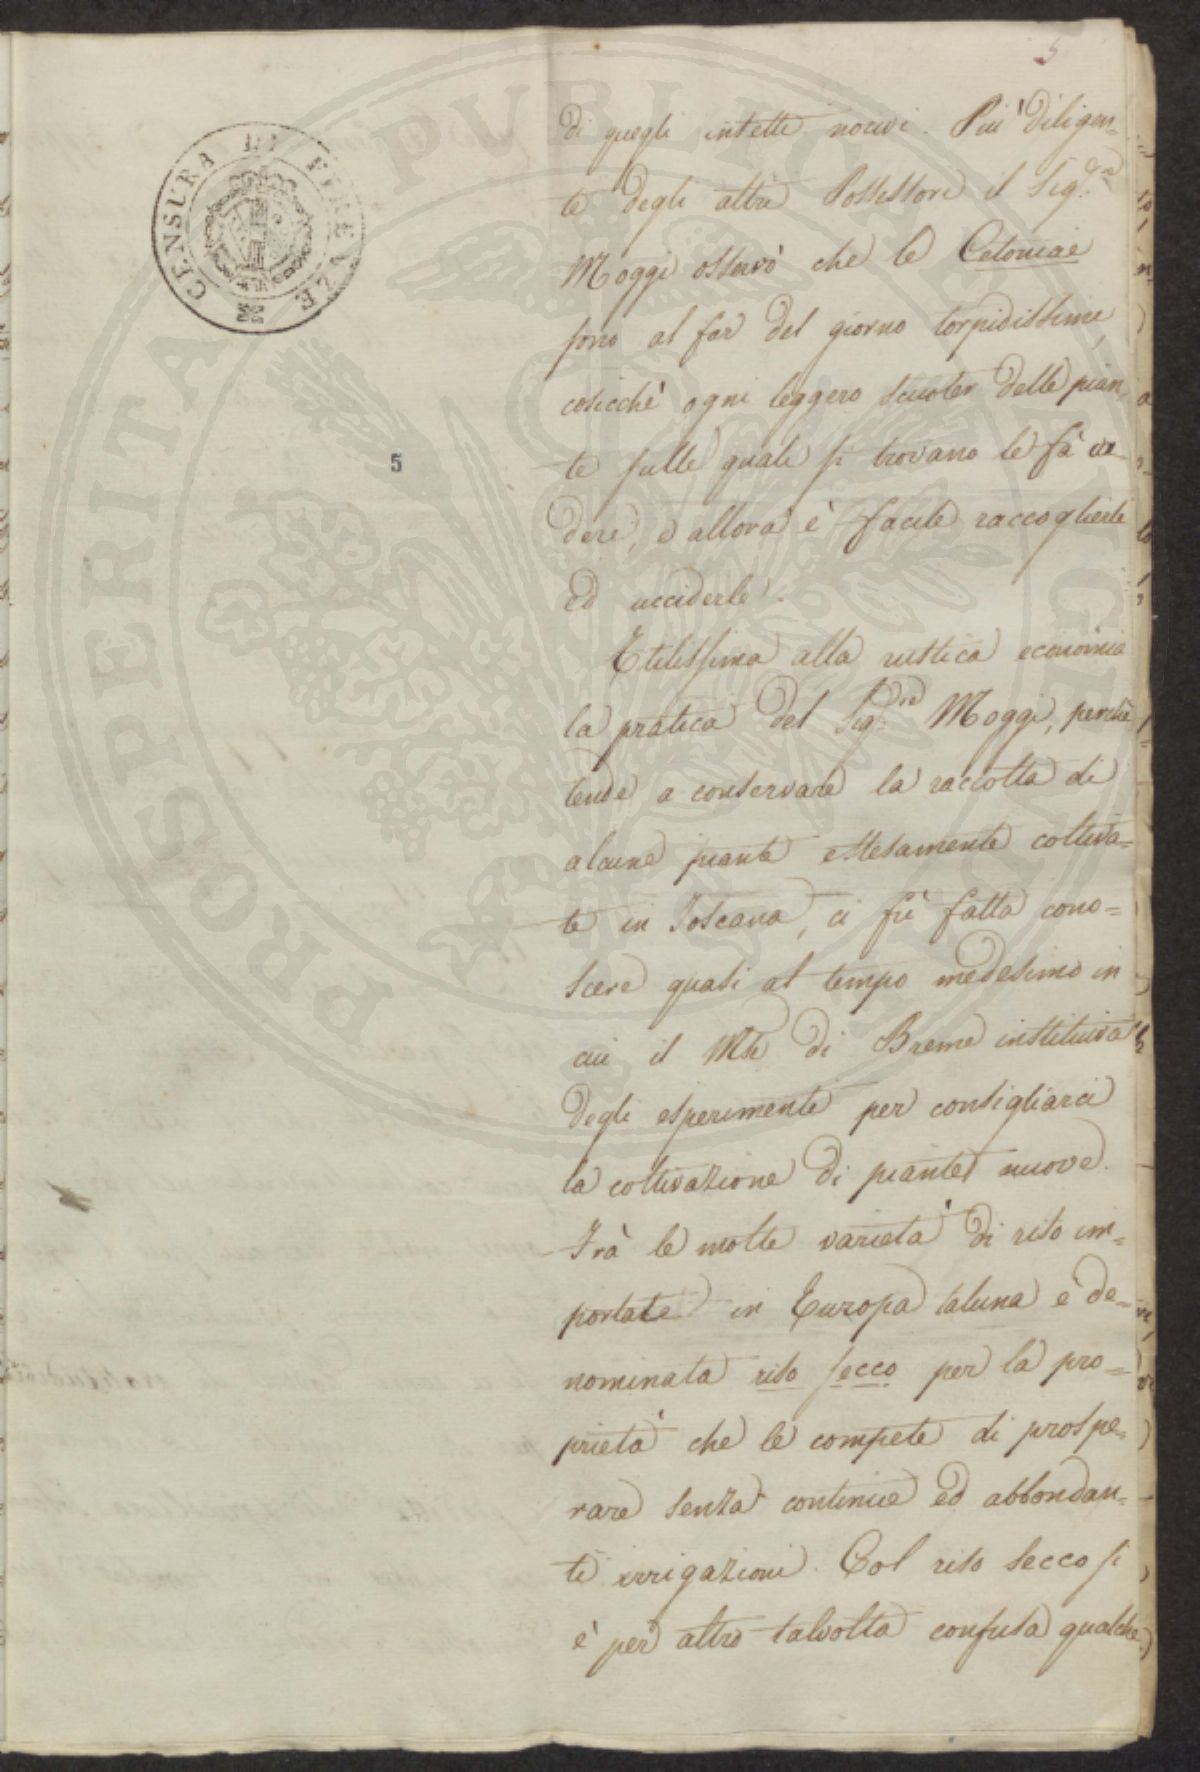 5
CENSURA DI FIRENZE
5
PROSPERITATI PUBLICAE AUGENDAE
di quegli insetti nocivi. Più diligen=
te degli altri Possessori il Sig.re
Moggi osservò che le Cetoniae
sono al far del giorno torpidissime,
cosicchè ogni leggero scuoter delle pian=
te sulle quali si trovano le fà ca
dere, e allora è facile raccoglierle
ed ucciderle.
Utilissima alla rustica economia
la pratica del Sig.re Moggi, perchè
tende a conservare la raccolta di
alcune piante estesamente coltiva=
te in Toscana, ci fù fatta cono=
scere quasi al tempo medesimo in
cui il Mse di Breme instituiva
degli esperimenti per consigliarci
la coltivazione di piante nuove.
Trà le molte varietà di riso im=
portate in Europa taluna è de=
nominata riso secco per la pro=
prietà che le compete di prospe=
rare senza continue ed abbondan=
ti irrigazioni. Col riso secco si
è per altro talvolta confusa qualche